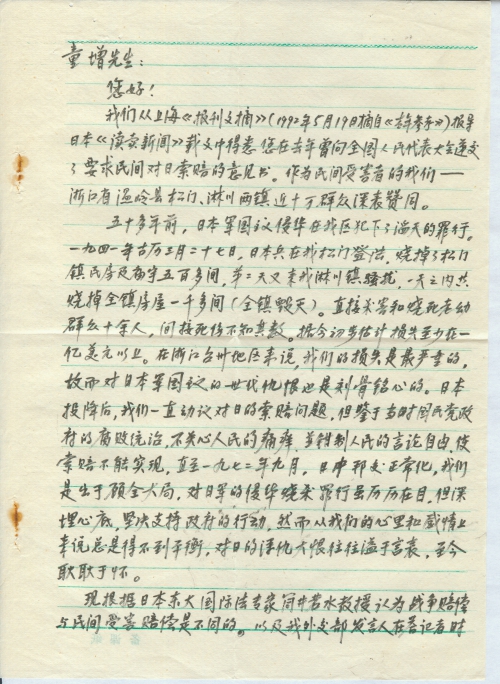 童增先生：
您好！
我们从上海《报刊文摘》(1992年5月19日摘自《青年参考》)报导
日本《读卖新闻》载文中得悉您在去年曾向全国人民代表大会递交
了要求民间对日索赔的意见书。作为民间受害者的我们——
浙江省温岭县松门、淋川两镇近十万群众深表赞同。
五十多年前，日本军国主义侵华在我区犯下了滔天的罪行。
一九四一年古历三月二十七日，日本兵在我松门登陆，烧掉了松门
镇民房及庙宇五百多间，第二天又来我淋川镇骚扰，一天之内共
烧掉全镇房屋一千多间（全镇毁灭）。直接杀害和烧死老幼
群众十余人，间接死伤不知其数。据今初步估计损失至少在一
亿美元以上。在浙江台州地区来说，我们的损失是最严重的，
故而对日本军国主义的世代仇恨也是刻骨铭心的。日本
投降后，我们一直动议对日的索赔问题，但鉴于当时国民党政
府的腐败统治，不关心人民的痛痒，并钳制人民的言论自由，使
索赔不能实现，直至一九七二年九月，日中邦交正常化，我们
是出于顾全大局，对日军的侵华烧杀罪行虽历历在目，但深
埋心底，坚决支持政府的行动，然而从我们的心里和感情上
来说总是得不到平衡，对日的深仇大恨往往溢于言表，至今
耿耿于怀。
现根据日本东大国际法专家筒井若水教授认为战争赔偿
与民间受害赔偿是不同的。以及我外交部发言人在答记者时